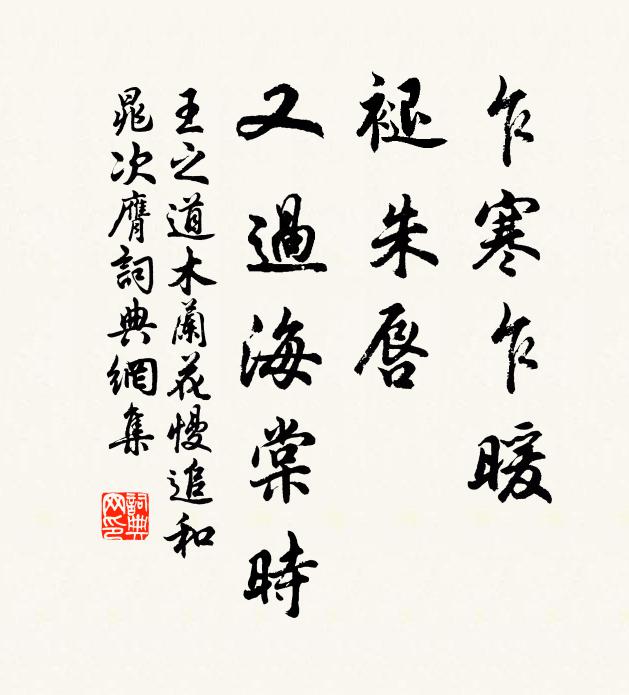 乍寒乍暖
褪朱唇
又過海棠時
王之道木蘭花慢追和
晁次膺詞典網集
詞典
网印